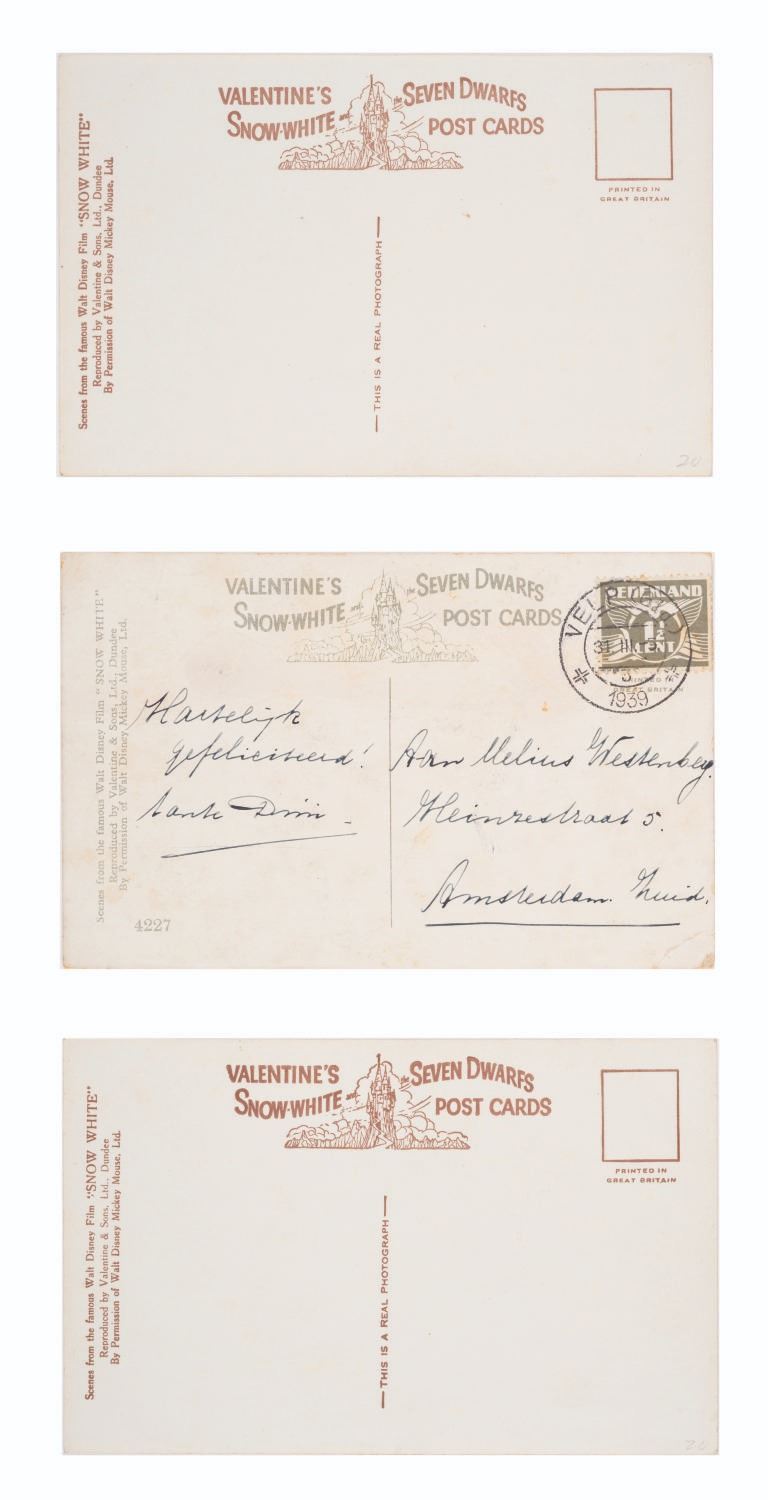 VALENTINE'S
SNOW-WHITE and the SEVEN DWARFS
POST CARDS
PRINTED IN
GREAT BRITAIN
Scenes from the famous Walt Disney Film "SNOW WHITE"
Reproduced by Valentine & Sons, Ltd., Dundee
By Permission of Walt Disney Mickey Mouse, Ltd.
THIS IS A REAL PHOTOGRAPH
20
VALENTINE'S
SNOW-WHITE and the SEVEN DWARFS
POST CARDS
NEDERLAND
1½
CENT
VELP
31 III
1939
PRINTED IN
GREAT BRITAIN
Scenes from the famous Walt Disney Film "SNOW WHITE"
Reproduced by Valentine & Sons, Ltd., Dundee
By Permission of Walt Disney Mickey Mouse, Ltd.
Hartelijk
gefeliciteerd!
tante
Aan Melius Westenberg.
Heinzestraat 5.
Amsterdam. Zuid.
4227
VALENTINE'S
SNOW-WHITE and the SEVEN DWARFS
POST CARDS
PRINTED IN
GREAT BRITAIN
Scenes from the famous Walt Disney Film "SNOW WHITE"
Reproduced by Valentine & Sons, Ltd., Dundee
By Permission of Walt Disney Mickey Mouse, Ltd.
THIS IS A REAL PHOTOGRAPH
20